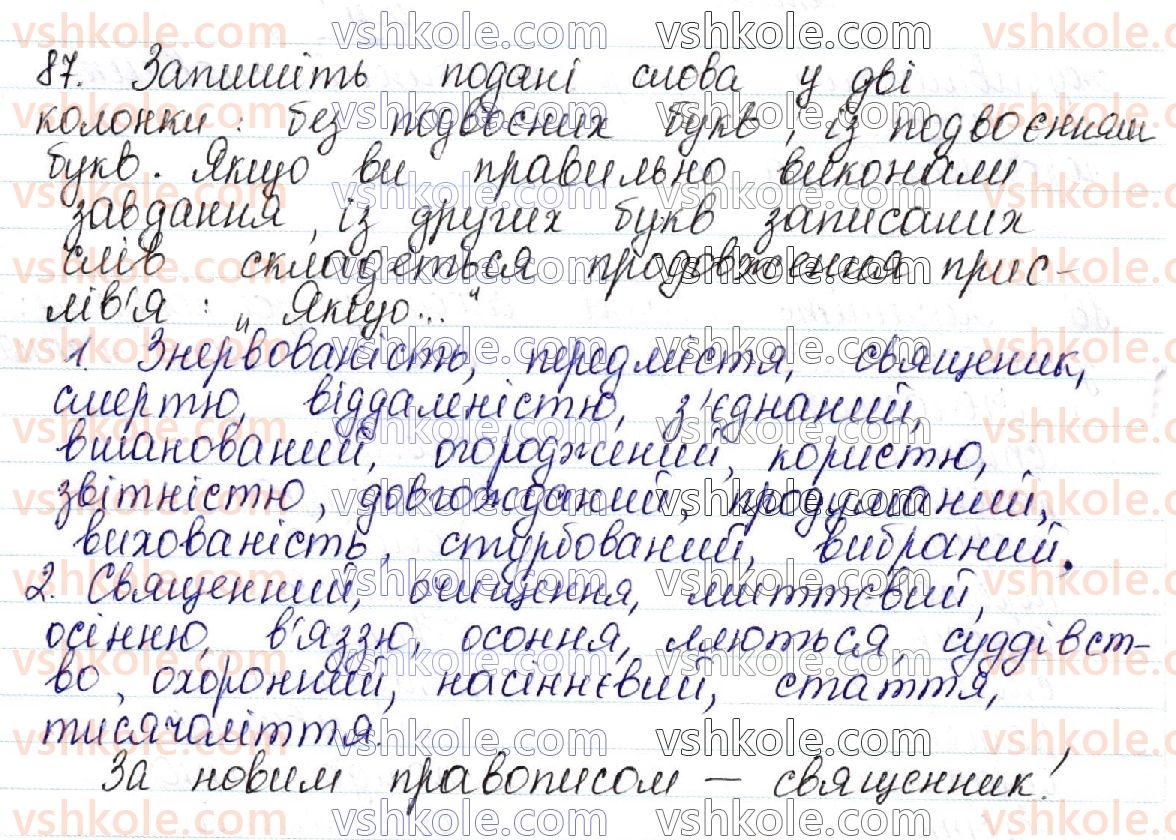 87. Запишіть подані слова у дві
колонки: без подвоєних букв, із подвоєними
букв. Якщо ви правильно виконали
завдання, із других букв записаних
слів складеться продовження прис-
лів'я: „Якщо..."
1. Знервованість, передмістя, священик,
смертю, віддаленістю, з'єднаний,
вшанований, огороджений, користю,
звітністю, довгожданий, продуманий,
вихованість, стурбований, вибраний.
2. Священний, очищення, миттєвий,
осінню, в'яззю, осоння, ллються, суддівст-
во, охоронний, насіннєвий, стаття,
тисячоліття.
За новим правописом – священник!
vshkole.com